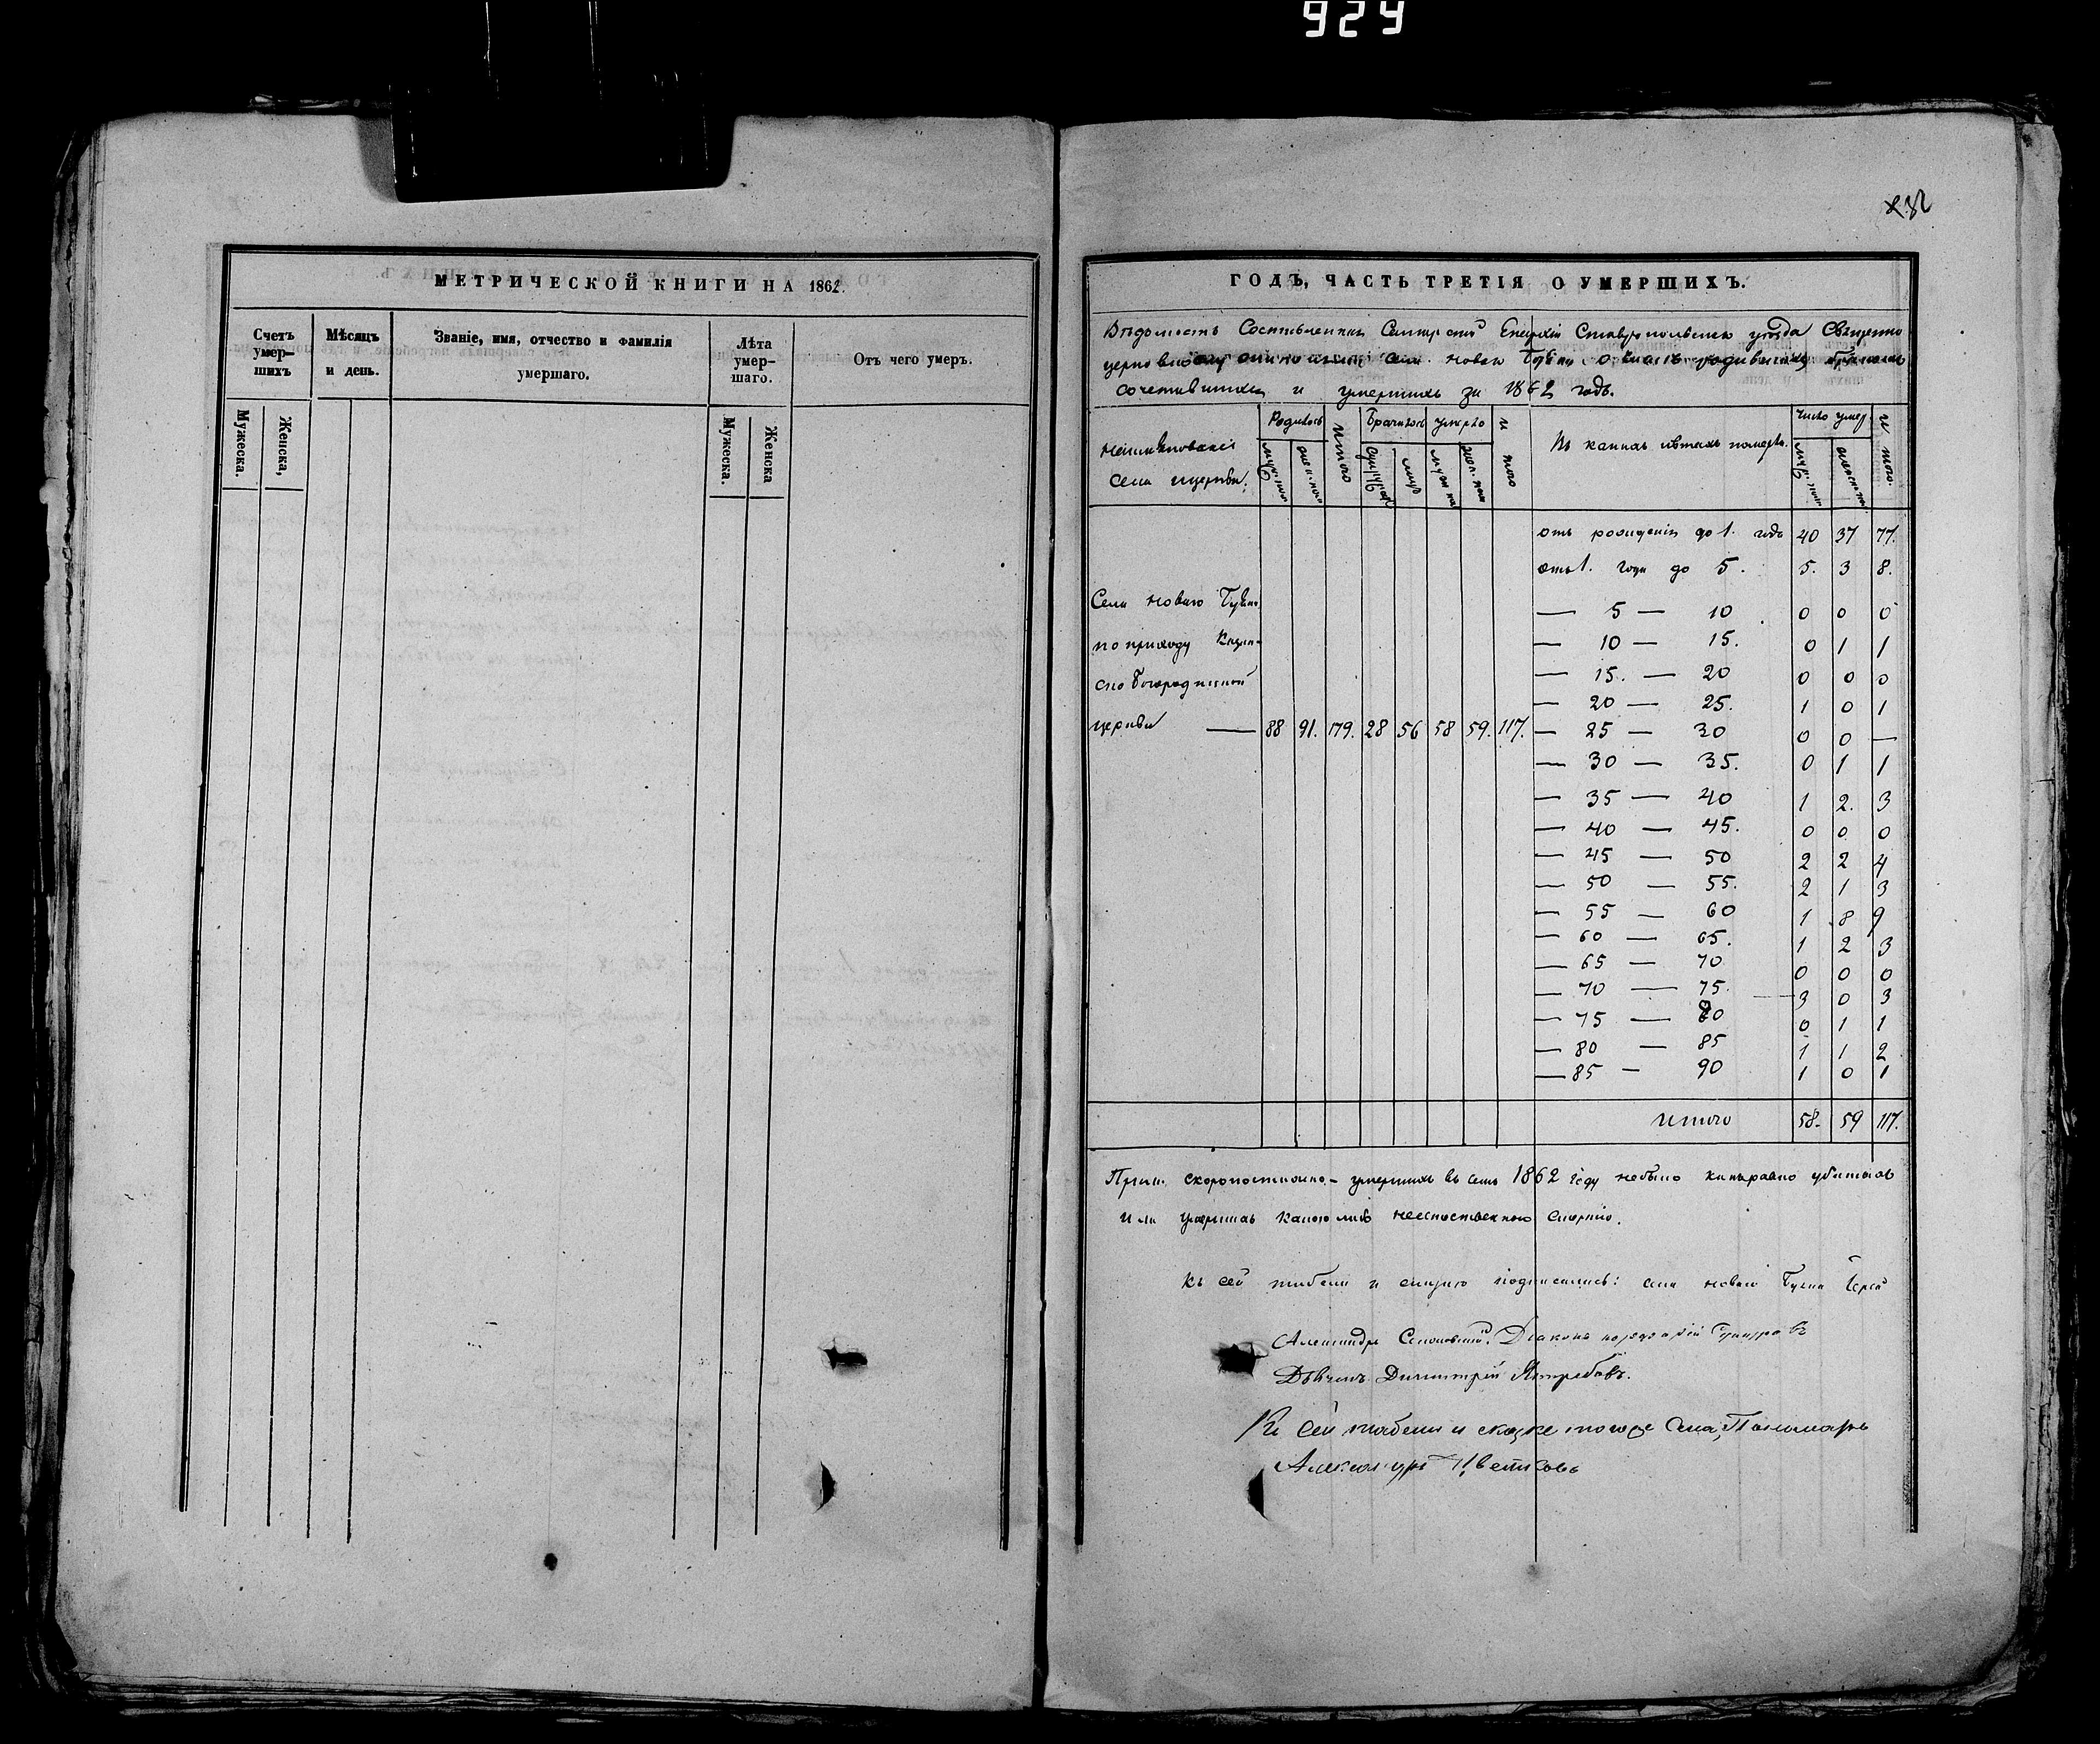 929
МЕТРИЧЕСКОЙ КНИГИ НА 1862.
Счетъ умер-шихъ
Мѣсяцъ и день.
Званіе, имя, отчество и фамилія умершаго.
Лѣта умер-шаго.
Отъ чего умеръ.
Мужеска.
Женска,
Мужеска.
Женска
ГОДЪ, ЧАСТЬ ТРЕТІЯ О УМЕРШИХЪ.
Вѣдомость Составленная Самарской Епархіи Ставропольскаго уѣзда Священно
сочетавшихся и умершихъ за 1862 годъ.
Наименованіе
Села и церкви.
Родилось
итого
умерло
и того
Въ какихъ лѣтахъ померли.
число умер.
и того.
отъ рожденія до 1. года 40 37 77.
отъ 1. года до 5. 5. 3 8.
Села Новаго Буяна
— 5 — 10 0 0 0
по приходу Казан-
— 10 — 15. 0 1 1
ско Богородицкой
— 15. — 20 0 0 0
— 20 — 25. 1 0 1
церкви — 88 91. 179. 28 56 58 59. 117.
— 25 — 30 0 0 —
— 30 — 35. 0 1 1
— 35 — 40 1 2. 3
— 40 — 45. 0 0 0
— 45 — 50 2 2 4
— 50 — 55. 2 1 3
— 55 — 60 1 8 9
— 60 — 65. 1 2 3
— 65 — 70 0 0 0
— 70 — 75. 3 0 3
— 75 — 80 0 1 1
— 80 — 85 1 1 2
— 85 — 90 1 0 1
итого 58. 59 117.
Прим. скоропостижно-умершихъ въ семъ 1862 году небыло какъ равно убитыхъ
или умершихъ какою либо неестественною смертію.
Къ сей табели и подписались: села Новаго Буяна Іерей
Александръ Діаконъ
Дьячекъ Димитрій Ястребовъ.
Къ сей табели и скаске тогоже Села, Пономарь
Александръ Цветковъ